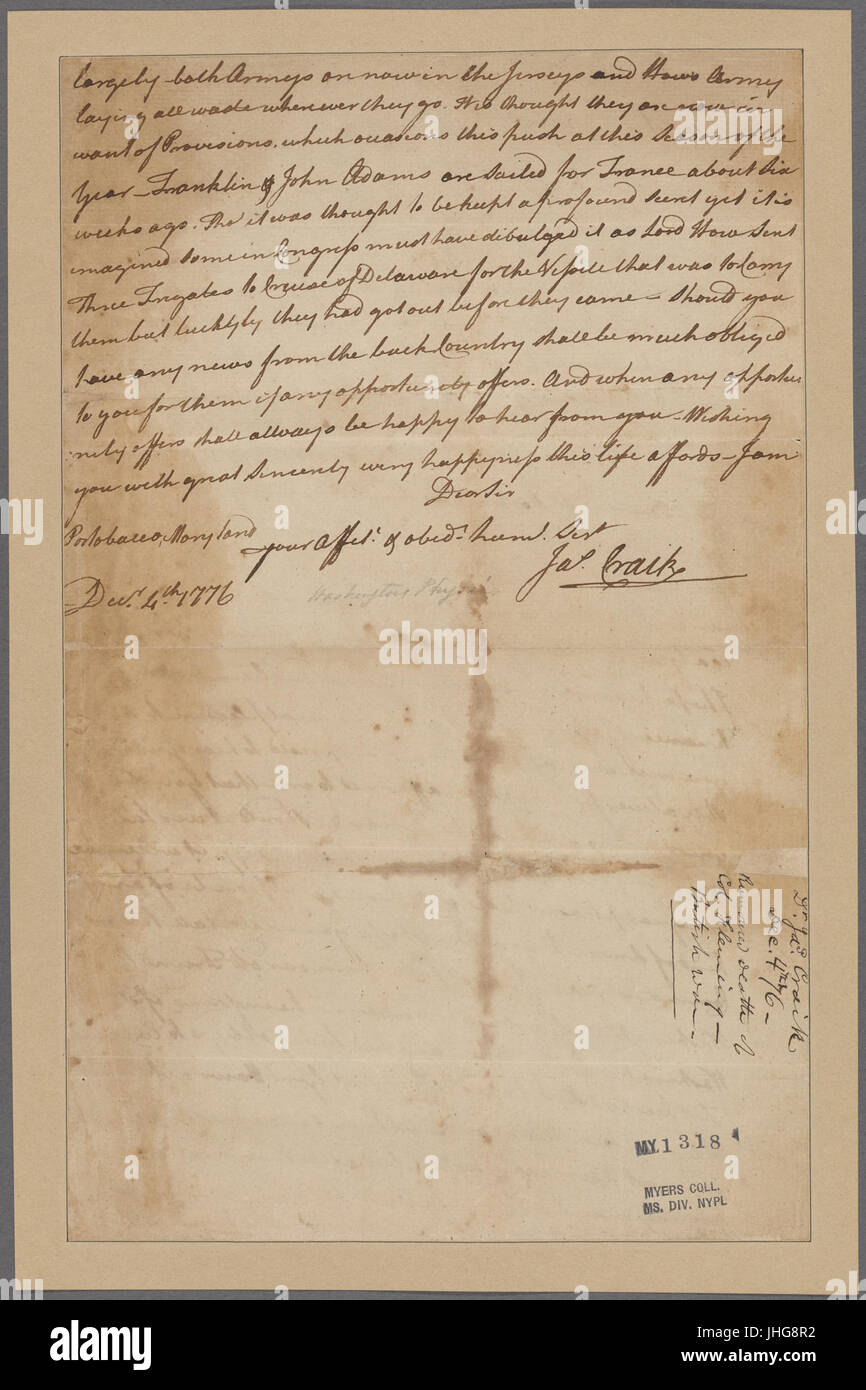 largely both Armeys are now in the Jerseys and Hows Army
laying all waste wherever they go. It is thought they are now in
want of Provisions, which occasions this push at this Season of the
Year – Franklin & John Adams are Sailed for France about Six
weeks ago. Tho' it was thought to be kept a profound secret yet it is
imagined some in Congress must have divulged it as Lord How Sent
Three Frigates to Cruise of Delaware for the Vessele that was to Carry
them but luckyly they had got out before they came – Should you
have any news from the back Country shall be much obliged
to you for them if any opportunity offers. And when any opportu
nity offers shall allways be happy to hear from you – Wishing
you with great Sincerity every happyness this life affords – I am
Dear Sir
Portobacco, Maryland
your affet. & obedt. huml. Sert
Jas. Craik
Decr. 4th 1776
Washingtons Physi
Dr. Jas. Craik
Dec. 4th 76 –
death of
Col. Fleming –
British War –
MY. 1318
MYERS COLL.
MS. DIV. NYPL
alamy
a
alamy stock photo
JHG8R2
www.alamy.com